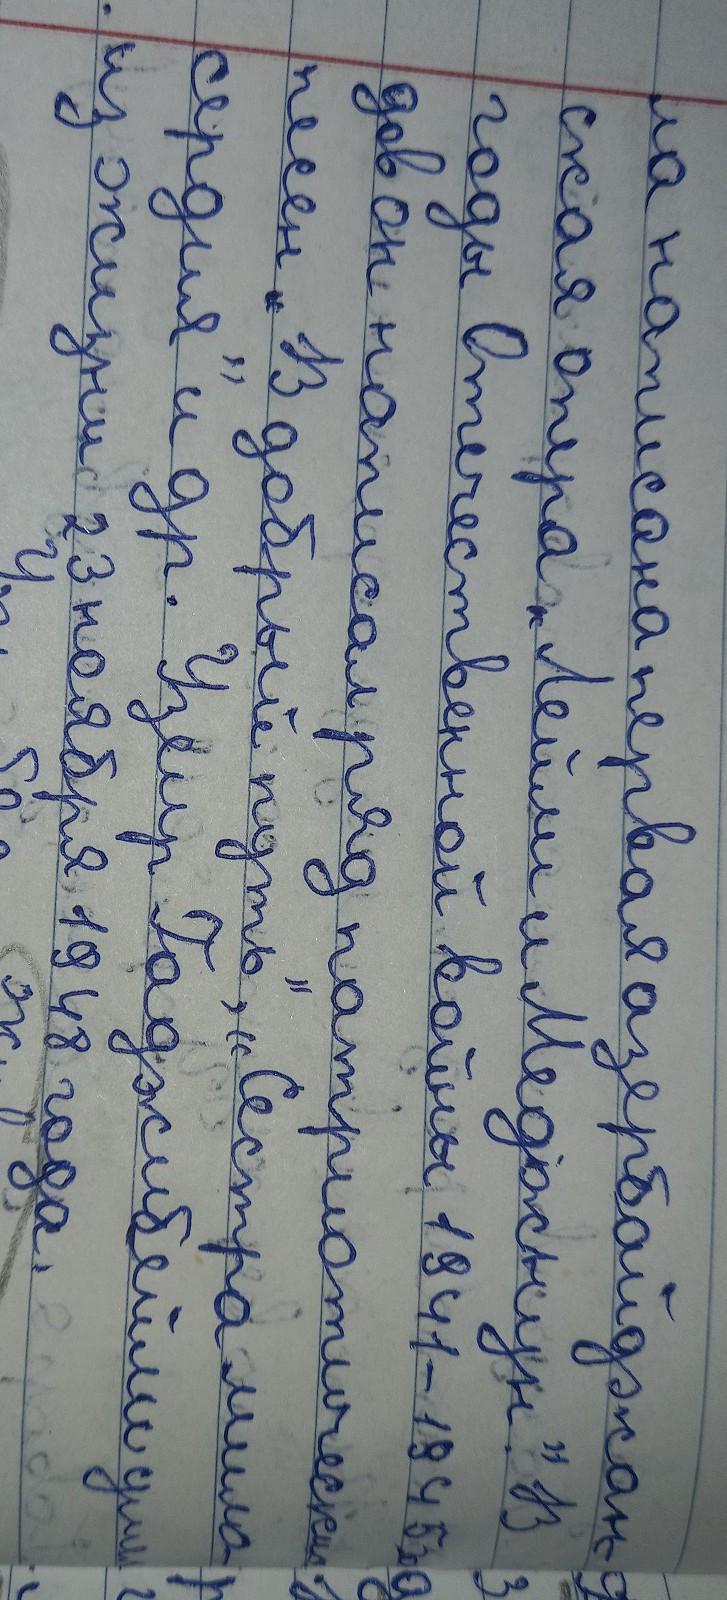 ла написана первая азербайджан-
ская опера „Лейли и Меджнун". В
годы Отечественной войны 1941-1945 го
дов он написал ряд патриотических
песен „В добрый путь", „Сестра мило
сердия" и др. Узеир Гаджибейли ушл
из жизни 23 ноября 1948 года.